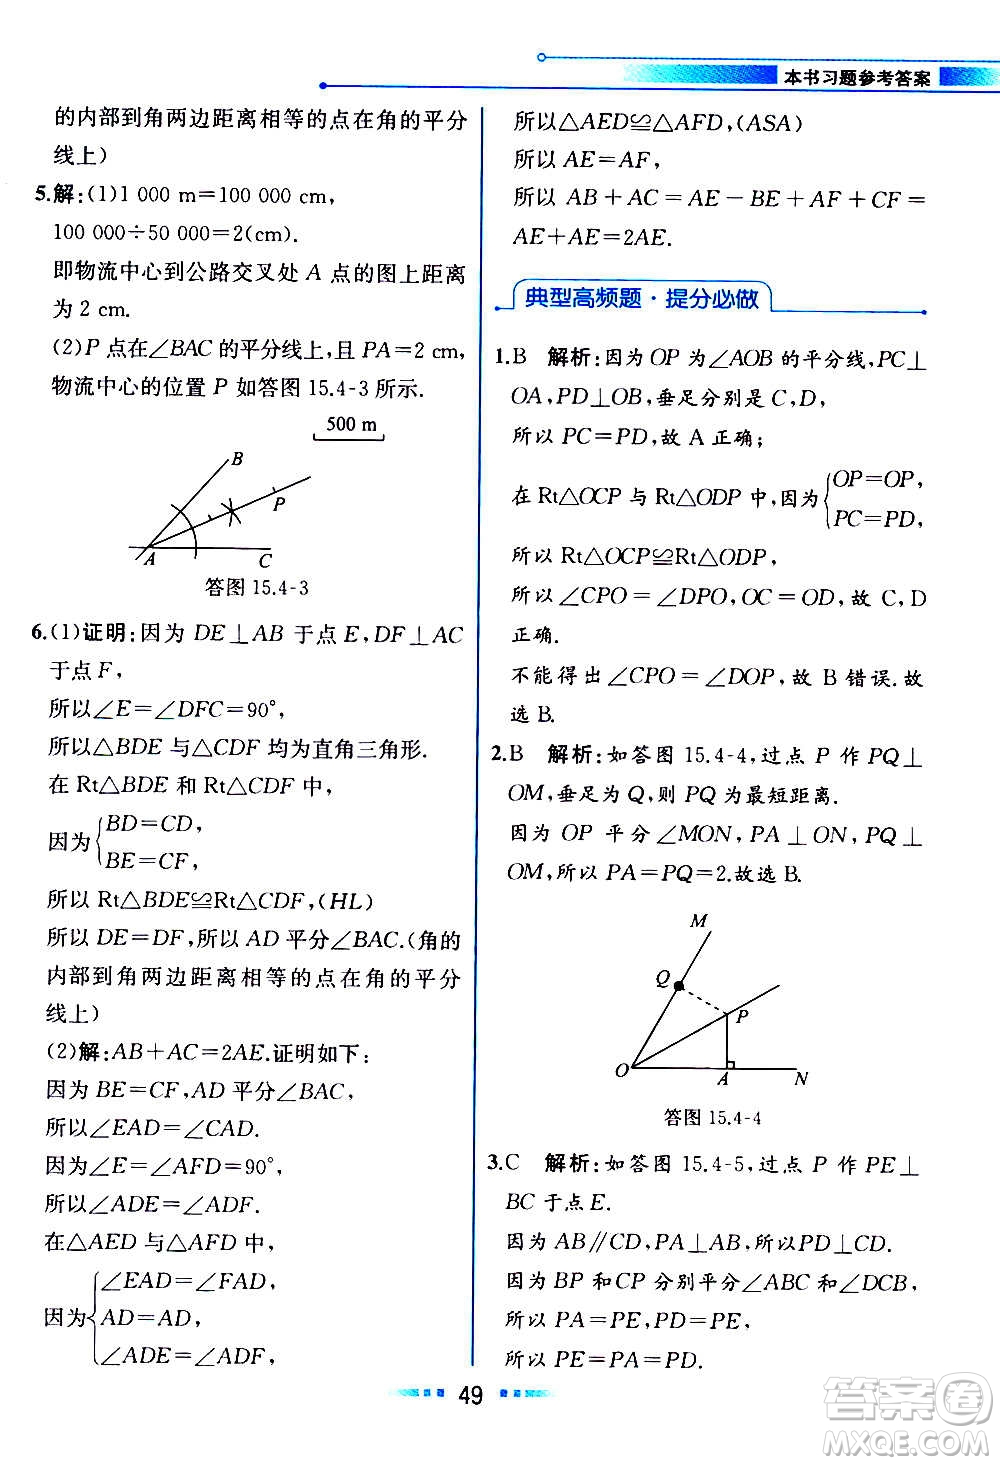 本书习题参考答案
的内部到角两边距离相等的点在角的平分
线上)
5.解:(1)1 000 m=100 000 cm,
100 000÷50 000=2(cm).
即物流中心到公路交叉处 A 点的图上距离
为 2 cm.
(2)P 点在∠BAC 的平分线上,且 PA=2 cm,
物流中心的位置 P 如答图 15.4-3 所示.
500 m
B
P
A
C
答图 15.4-3
6.(1)证明:因为 DE⊥AB 于点 E,DF⊥AC
于点 F,
所以∠E=∠DFC=90°,
所以△BDE 与△CDF 均为直角三角形.
在 Rt△BDE 和 Rt△CDF 中,
因为{BD=CD,
BE=CF,
所以 Rt△BDE≌Rt△CDF,(HL)
所以 DE=DF,所以 AD 平分∠BAC.(角的
内部到角两边距离相等的点在角的平分
线上)
(2)解:AB+AC=2AE.证明如下:
因为 BE=CF,AD 平分∠BAC,
所以∠EAD=∠CAD.
因为∠E=∠AFD=90°,
所以∠ADE=∠ADF.
在△AED 与△AFD 中,
因为{∠EAD=∠FAD,
AD=AD,
∠ADE=∠ADF,
所以△AED≌△AFD,(ASA)
所以 AE=AF,
所以 AB+AC=AE-BE+AF+CF=
AE+AE=2AE.
典型高频题·提分必做
1.B 解析:因为 OP 为∠AOB 的平分线,PC⊥
OA,PD⊥OB,垂足分别是 C,D,
所以 PC=PD,故 A 正确;
在 Rt△OCP 与 Rt△ODP 中,因为{OP=OP,
PC=PD,
所以 Rt△OCP≌Rt△ODP,
所以∠CPO=∠DPO,OC=OD,故 C,D
正确.
不能得出∠CPO=∠DOP,故 B 错误.故
选 B.
2.B 解析:如答图 15.4-4,过点 P 作 PQ⊥
OM,垂足为 Q,则 PQ 为最短距离.
因为 OP 平分∠MON,PA⊥ON,PQ⊥
OM,所以 PA=PQ=2.故选 B.
M
Q
P
O
A
N
答图 15.4-4
3.C 解析:如答图 15.4-5,过点 P 作 PE⊥
BC 于点 E.
因为 AB∥CD,PA⊥AB,所以PD⊥CD.
因为 BP 和 CP 分别平分∠ABC 和∠DCB,
所以 PA=PE,PD=PE,
所以 PE=PA=PD.
49
答案圈
MXQE.COM